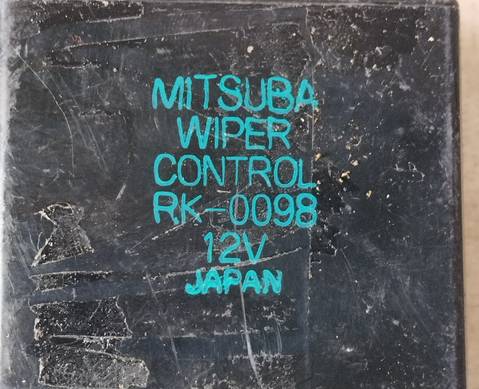 MITSUBA
WIPER
CONTROL
RK-0098
12V
JAPAN